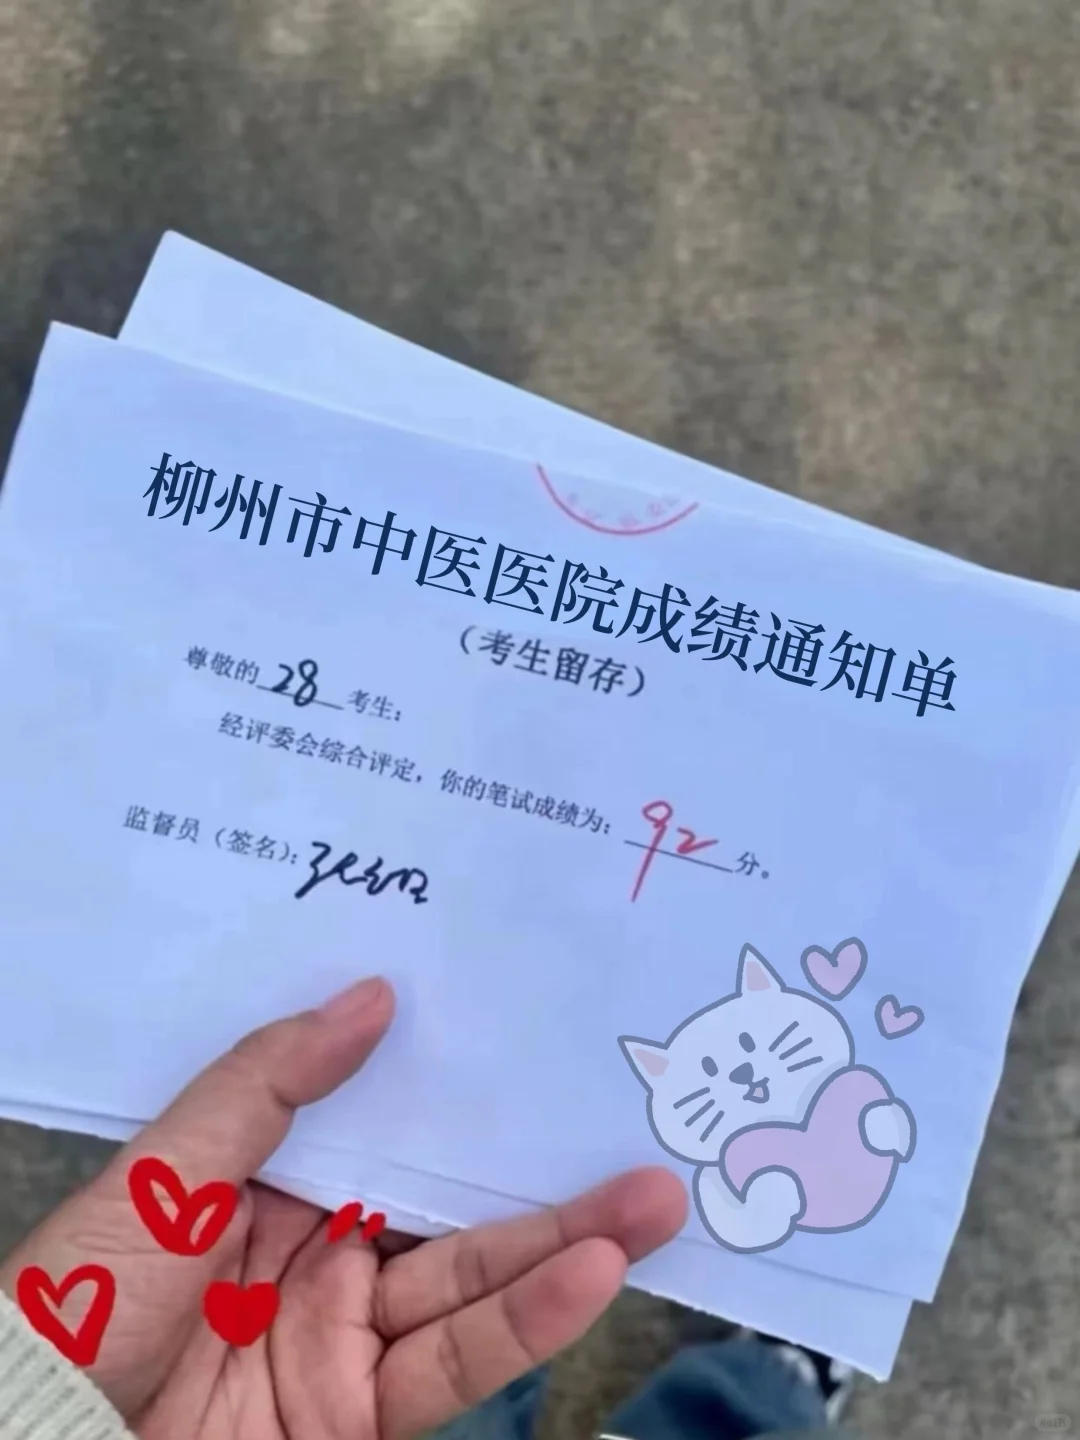 柳州市中医医院成绩通知单
（考生留存）
尊敬的 28 考生：
经评委会综合评定，你的笔试成绩为：92分。
监督员（签名）：